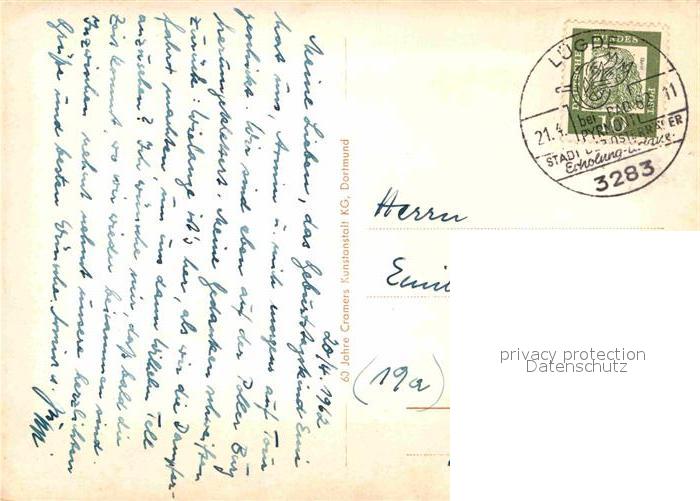 20/4. 1962
Meine Lieben, das Geburtstagskind Emi
hat uns, Armin u. mich morgens auf Tour
geschickt. Wir sind eben auf der Poller Burg
zurück. Wielange ist's her, als wir die Dampfer-
fahrt machten, um uns dann Wilhelm Tell
anzusehen? Ich wünsche mir, daß bald die
Zeit kommt, wo wir wieder beisammen sind.
Inzwischen nehmt unsere herzlichen
Grüße und besten Wünsche. Armin u.
60 Jahre Cramers Kunstanstalt KG, Dortmund
LÜGDE
bei BAD
PYRMONT
21.4.
11
STADT DER OSTERRÄDER
Erholung
3283
DEUTSCHE BUNDESPOST
10
Herrn
(19a)
privacy protection
Datenschutz